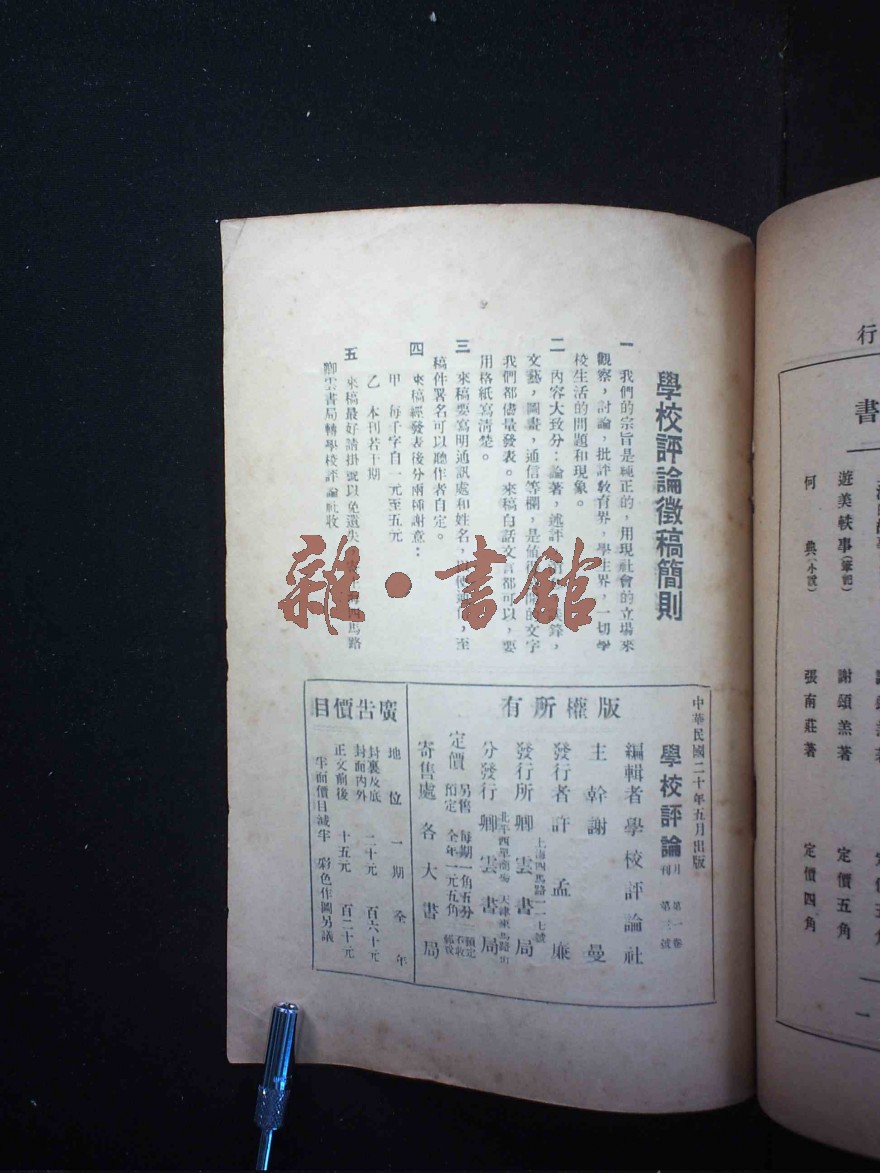 學校評論徵稿簡則
一 我們的宗旨是純正的，用現社會的立場來
觀察，討論，批評教育界，學生界，一切學
校生活的問題和現象。
二 內容大致分：論著，述評，鋒，
文藝，圖畫，通信等欄，是值得的文字
我們都儘量發表。來稿白話文言都可以，要
用格紙寫清楚。
三 來稿要寫明通訊處和姓名，至
稿件署名可以聽作者自定。
四 來稿經發表後分兩種謝意：
甲 每千字自一元至五元
乙 本刊若干期
五 來稿最好請掛號以免遺失馬路
卿雲書局轉學校評論社收
中華民國二十年五月出版
學校評論 月刊 第一卷 第三號
版權所有
編輯者 學校評論社
主幹 謝曼
發行者 許孟廉
發行所 卿雲書局
上海四馬路一一七號
分發行 卿雲書局
北平西單商場 天津東馬路
定價
另售 每期一角五分
預定 全年一元五角
寄售處 各大書局
廣告價目
地位 一期 全年
封裏及底封面內外 二十元 百六十元
正文前後 十五元 百二十元
半面價目減半 彩色作圖另議
行
書
謝頌羔著 定價五角
遊美軼事（筆記） 謝頌羔著 定價五角
何典（小說） 張南莊著 定價四角
一
雜·書館